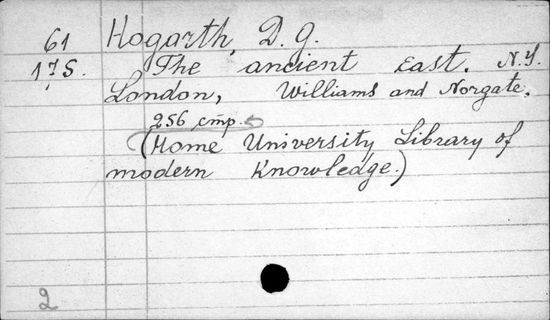 61 Hogarth, D. G.
175. The ancient East. N.Y.
London, Williams and Norgate.
256 cmp.
(Home University Library of
modern Knowledge.)
2